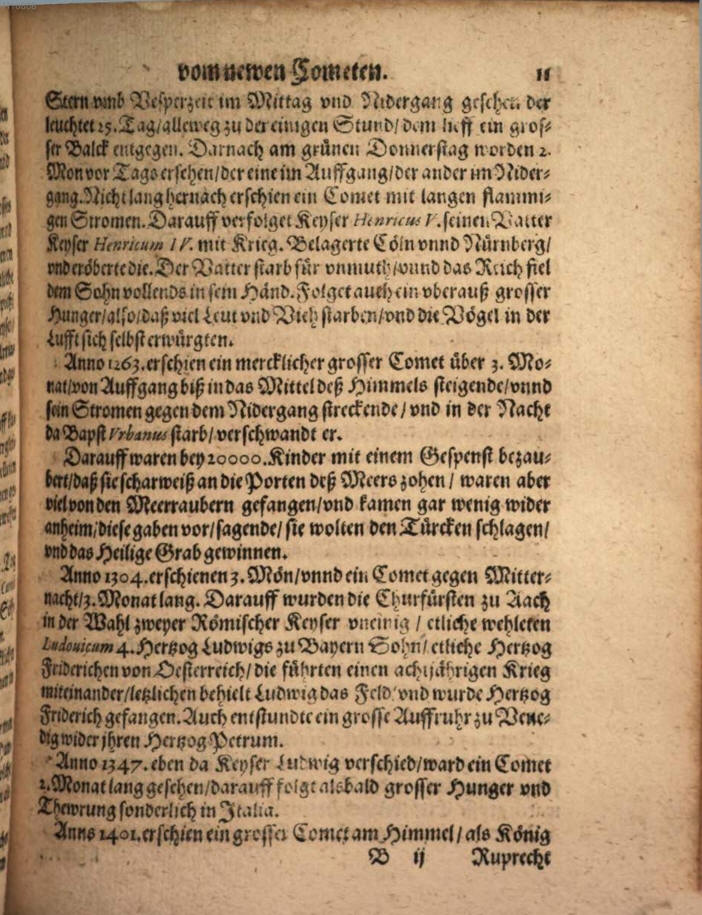 vom newen Cometen. 11
Stern vmb Vesperzeit im Mittag vnd Nidergang gesehen der
leuchtet 25. Tag/alleweg zu der einigen Stund/dem lieff ein gros-
ser Balck entgegen. Darnach am grünen Donnerstag worden 2.
Mon vor Tags ersehen/der eine im Auffgang/der ander im Nider-
gang. Nicht lang hernach erschien ein Comet mit langen flammi-
gen Stromen. Darauff verfolget Keyser Henricus V. seinen Vatter
Keyser Henricum IV. mit Krieg. Belagerte Cöln vnnd Nürnberg/
vnd eröberte die. Der Vatter starb für vnmuth/vnnd das Reich fiel
dem Sohn vollends in sein Händ. Folget auch ein vberauß grosser
Hunger/also/daß viel Leut vnd Vieh starben/vnd die Vögel in der
Lufft sich selbst erwürgten.
Anno 1263. erschien ein mercklicher grosser Comet über 3. Mo-
nat/von Auffgang biß in das Mittel deß Himmels steigende/vnnd
sein Stromen gegen dem Nidergang streckende/vnd in der Nacht
da Bapst Vrbanus starb/verschwandt er.
Darauff waren bey 20000. Kinder mit einem Gespenst bezau-
bert/daß sie scharweiß an die Porten deß Meers zohen/waren aber
viel von den Meerraubern gefangen/vnd kamen gar wenig wider
anheim/diese gaben vor/sagende/sie wolten den Türcken schlagen/
vnd das Heilige Grab gewinnen.
Anno 1304. erschienen 3. Mön/vnnd ein Comet gegen Mitter-
nacht/3. Monat lang. Darauff wurden die Churfürsten zu Aach
in der Wahl zweyer Römischer Keyser vneinig/etliche wehleten
Ludouicum 4. Hertzog Ludwigs zu Bayern Sohn/etliche Hertzog
Friderichen von Oesterreich/die führten einen achtjährigen Krieg
miteinander/letzlichen behielt Ludwig das Feld/vnd wurde Hertzog
Friderich gefangen. Auch entstundte ein grosse Auffruhr zu Vene-
dig wider jhren Hertzog Petrum.
Anno 1347. eben da Keyser Ludwig verschied/ward ein Comet
2. Monat lang gesehen/darauff folgt alsbald grosser Hunger vnd
Thewrung sonderlich in Italia.
Anno 1401. erschien ein grosser Comet am Himmel/als König
B ij Ruprecht